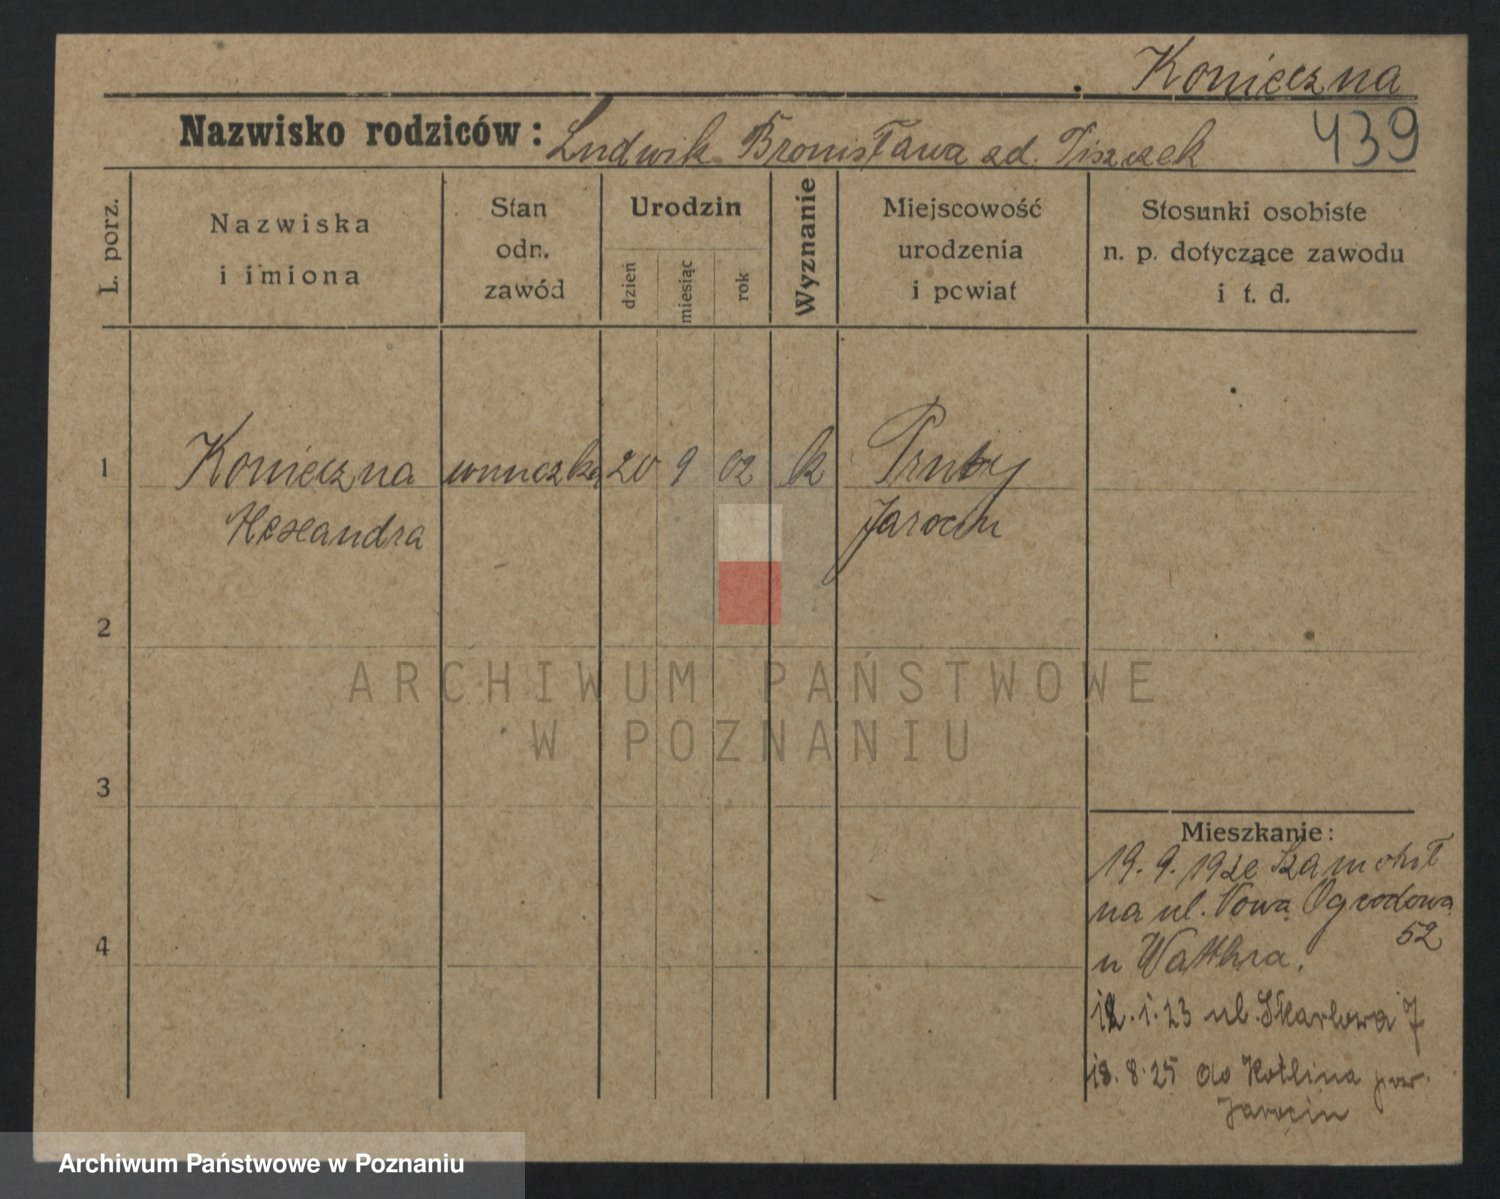 Konieczna
439
Nazwisko rodziców: Ludwik Bronisława zd. Piszczek
L. porz.
Nazwiska
i imiona
Stan
odn.
zawód
Urodzin
dzień
miesiąc
rok
Wyznanie
Miejscowość
urodzenia
i powiat
Stosunki osobiste
n. p. dotyczące zawodu
i t. d.
1
Konieczna uczennica 20 9 02 k Pruby
Jarocin
2
3
4
ARCHIWUM PAŃSTWOWE
W POZNANIU
Mieszkanie:
19. 9. 192
na ul. Nowa Ogrodowa
52
u
1.23 ul. 7
18.8.25 do Kotlina pow.
Jarocin
Archiwum Państwowe w Poznaniu